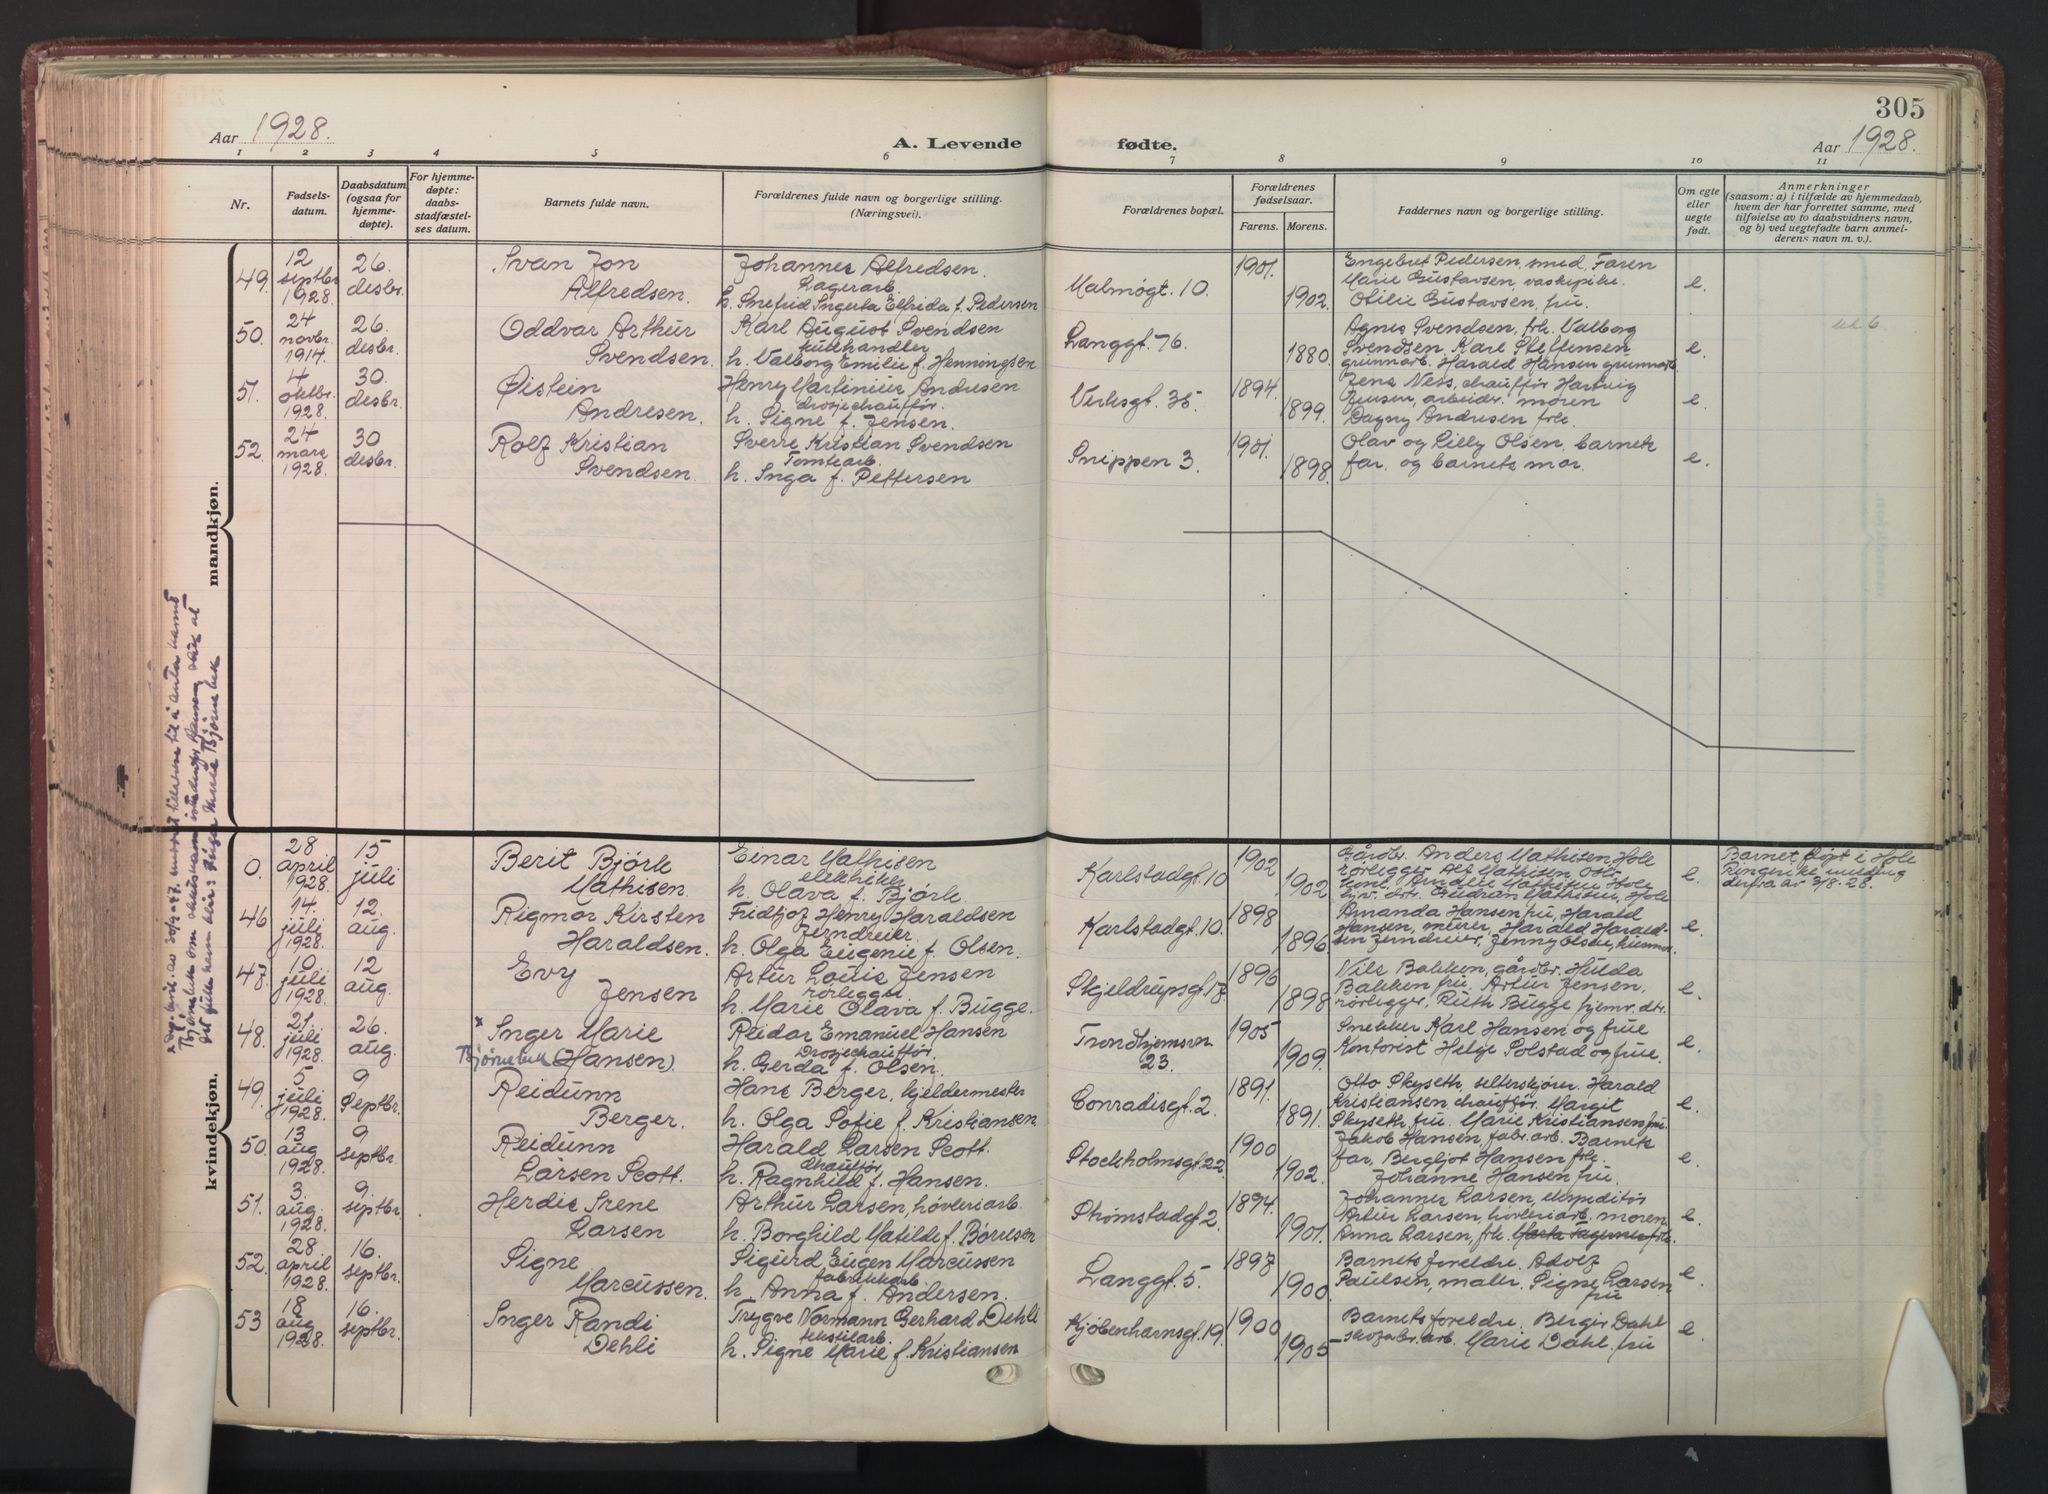 305
Aar 1928.
A. Levende fødte.
Aar 1928.
1 2 3 4 5 6 7 8 9 10 11
Nr.
Fødsels-
datum.
Daabsdatum
(ogsaa for
hjemme-
døpte).
For hjemme-
døpte:
daabs-
stadfæstel-
ses datum.
Barnets fulde navn.
Forældrenes fulde navn og borgerlige stilling.
(Næringsvei).
Forældrenes bopæl.
Forældrenes
fødselsaar.
Farens. Morens.
Faddernes navn og borgerlige stilling.
Om egte
eller
uegte
født.
Anmerkninger
(saasom: a) i tilfælde av hjemmedaab,
hvem der har forrettet samme, med
tilføielse av to daabsvidners navn,
og b) ved uegtefødte barn anmel-
derens navn m. v.).
mandkjøn.
49. 12 septbr 1928. 26. desbr.
Svan Jon
Alfredsen.
Johannes Alfredsen.
Lagerarb.
h. Snefrid Ingerta Elfrida f. Pedersen
Malmøgt. 10.
1901. 1902.
Engebret Pedersen, smed, Faren
Marie Gustavsen, vaskepike.
Otilie Gustavsen, fru.
e.
50. 24 novbr. 1914. 26. desbr.
Oddvar Arthur
Svendsen.
Karl August Svendsen
kulhandler
h. Valborg Emilie f. Henningsen
Langgt. 76.
1880.
Agnes Svendsen, frk. Valborg
Svendsen. Karl Steffensen
grunnarb. Harald Hansen grunnarb
e.
51. 4 oktbr. 1928. 30. desbr.
Øistein
Andresen.
Henry Martinius Andresen
drosjechauffør.
h. Signe f. Jensen.
Verksgt. 35.
1894. 1899.
Jens Ness, chauffør Hartvig
Jensen, arbeider. moren
Dagny Andresen frk.
e.
52. 24 mars 1928. 30 desbr.
Rolf Kristian
Svendsen.
Sverre Kristian Svendsen
Tomtearb.
h. Inga f. Pettersen
Snippen 3.
1901. 1898.
Olav og Lilly Olsen. barnets
far. og barnets mor.
e.
kvindekjøn.
0. 28 april 1928. 15 juli
Berit Bjørk
Mathisen.
Einar Mathisen
elektriker
h. Olava f. Bjørk
Karlstadgt. 10
1902 1902
Gårdbr. Anders Mathisen Hole
rørlegger Alf Mathisen Oslo
Amalie Mathisen Hole
Gudrun Mathisen, Hole
e.
Barnet døpt i Hole
Ringerike
derfra av 3/8-28.
46 14 juli 1928. 12. aug.
Rigmor Kirsten
Haraldsen.
Fridtjof Henry Haraldsen
jerndreier.
h. Olga Eugenie f. Olsen.
Karlstadgt. 10.
1898 1896
Amanda Hansen fru, Harald
Hansen, murer, Harald Harald-
sen jerndreier, Jenny Olsen,
e.
47. 10 juli 1928. 12 aug.
Evy
Jensen
Artur Louis Jensen
rørlegger
h. Marie Olava f. Bugge.
Skjeldrupsgt. 17.
1896 1898
Nils Bakken, gårdbr. Hulda
Bakken fru, Artur Jensen,
rørlegger, Ruth Bugge hjemv. dtr.
e.
48. 21. juli 1928. 26. aug.
* Inger Marie
Bjørnebek (Hansen)
Reidar Emanuel Hansen
Drosjechauffør.
h. Gerda f. Olsen.
Trondhjemsvn
23.
1905 1909.
Snekker Karl Hansen og frue
Kontorist Helge Solstad og frue.
e.
49. 5 juli 1928. 9 Septbr.
Reidunn
Berger.
Hans Berger, kjeldermester
h. Olga Sofie f. Kristiansen
Conradisgt. 2.
1891. 1891.
Otto Skyseth, selterskjører. Harald
Kristiansen chauffør. Margit
Skyseth, fru. Marie Kristiansen fru.
e.
50. 13 aug 1928. 9 septbr.
Reidunn
Larsen Scott.
Harald Larsen Scott.
chauffør
h. Ragnhild f. Hansen.
Stockholmsgt. 22.
1900 1902.
Jakob Hansen, fabr. arb. Barnets
far, Bergljot Hansen frk.
Johanne Hansen fru.
e.
51. 3. aug. 1928. 9. septbr.
Herdis Irene
Larsen
Arthur Larsen, høvleriarb.
h. Borghild Matilde f. Børresen
Strømstadgt. 2.
1894. 1901.
Johannes Larsen, ekspeditør
Artur Larsen, høvleriarb. moren
Anna Larsen, frk.
e.
52. 28 april 1928. 16. septbr.
Signe
Marcussen.
Sigurd Eugen Marcussen
fabrikkarb.
h. Anna f. Andersen.
Langgt. 5.
1897 1900
Barnets foreldre. Adolf
Paulsen, maler. Signe Larsen
fru
e
53 18 aug 1928. 16. septbr.
Inger Randi
Dehli
Trygve Normann Gerhard Dehli
tekstilarb.
h. Signe Marie f. Kristiansen
Kjøbenhavnsgt. 19.
1900 1905
Barnets foreldre. Berger Dahl
skofabr. arb. Marie Dahl. fru
e.